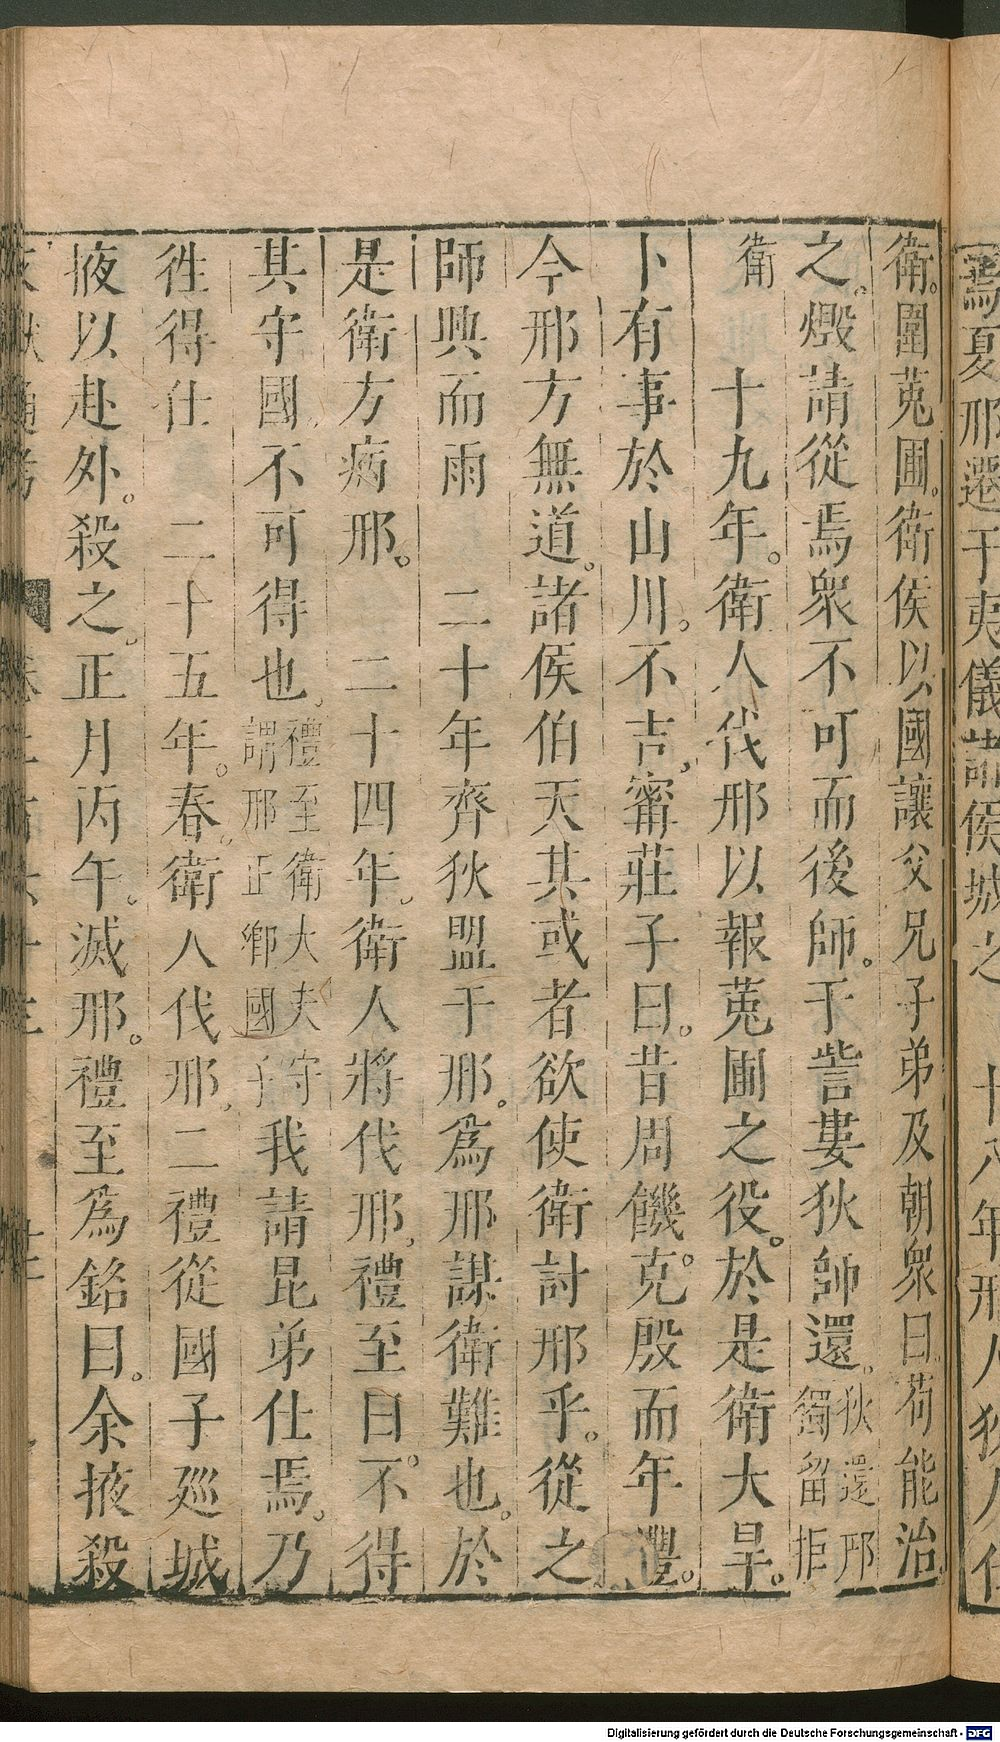 焉夏邢遷于夷儀諸侯城之　十八年邢人狄人伐
衛。圍菟圃。衛侯以國讓父兄子弟及朝衆曰。苟能治
之。燬請從焉衆不可而後師。于訾婁狄師還。狄還邢
獨留拒
衛　十九年。衛人伐邢以報菟圃之役。於是衛大旱。
卜有事於山川。不吉。甯莊子曰。昔周饑。克殷而年豐。
今邢方無道。諸侯伯天其或者欲使衛討邢乎。從之
師興而雨　二十年齊狄盟于邢。爲邢謀衛難也。於
是衛方病邢。　二十四年。衛人將伐邢，禮至曰。不得
其守國。不可得也。禮至衛大夫守
謂邢正卿國子
我請昆弟仕焉。乃
徃得仕　二十五年。春。衛人伐邢，二禮從國子廵城
掖以赴外。殺之。正月丙午。滅邢。禮至爲銘曰。余掖殺
文獻通考
Digitalisierung gefördert durch die Deutsche Forschungsgemeinschaft - DFG